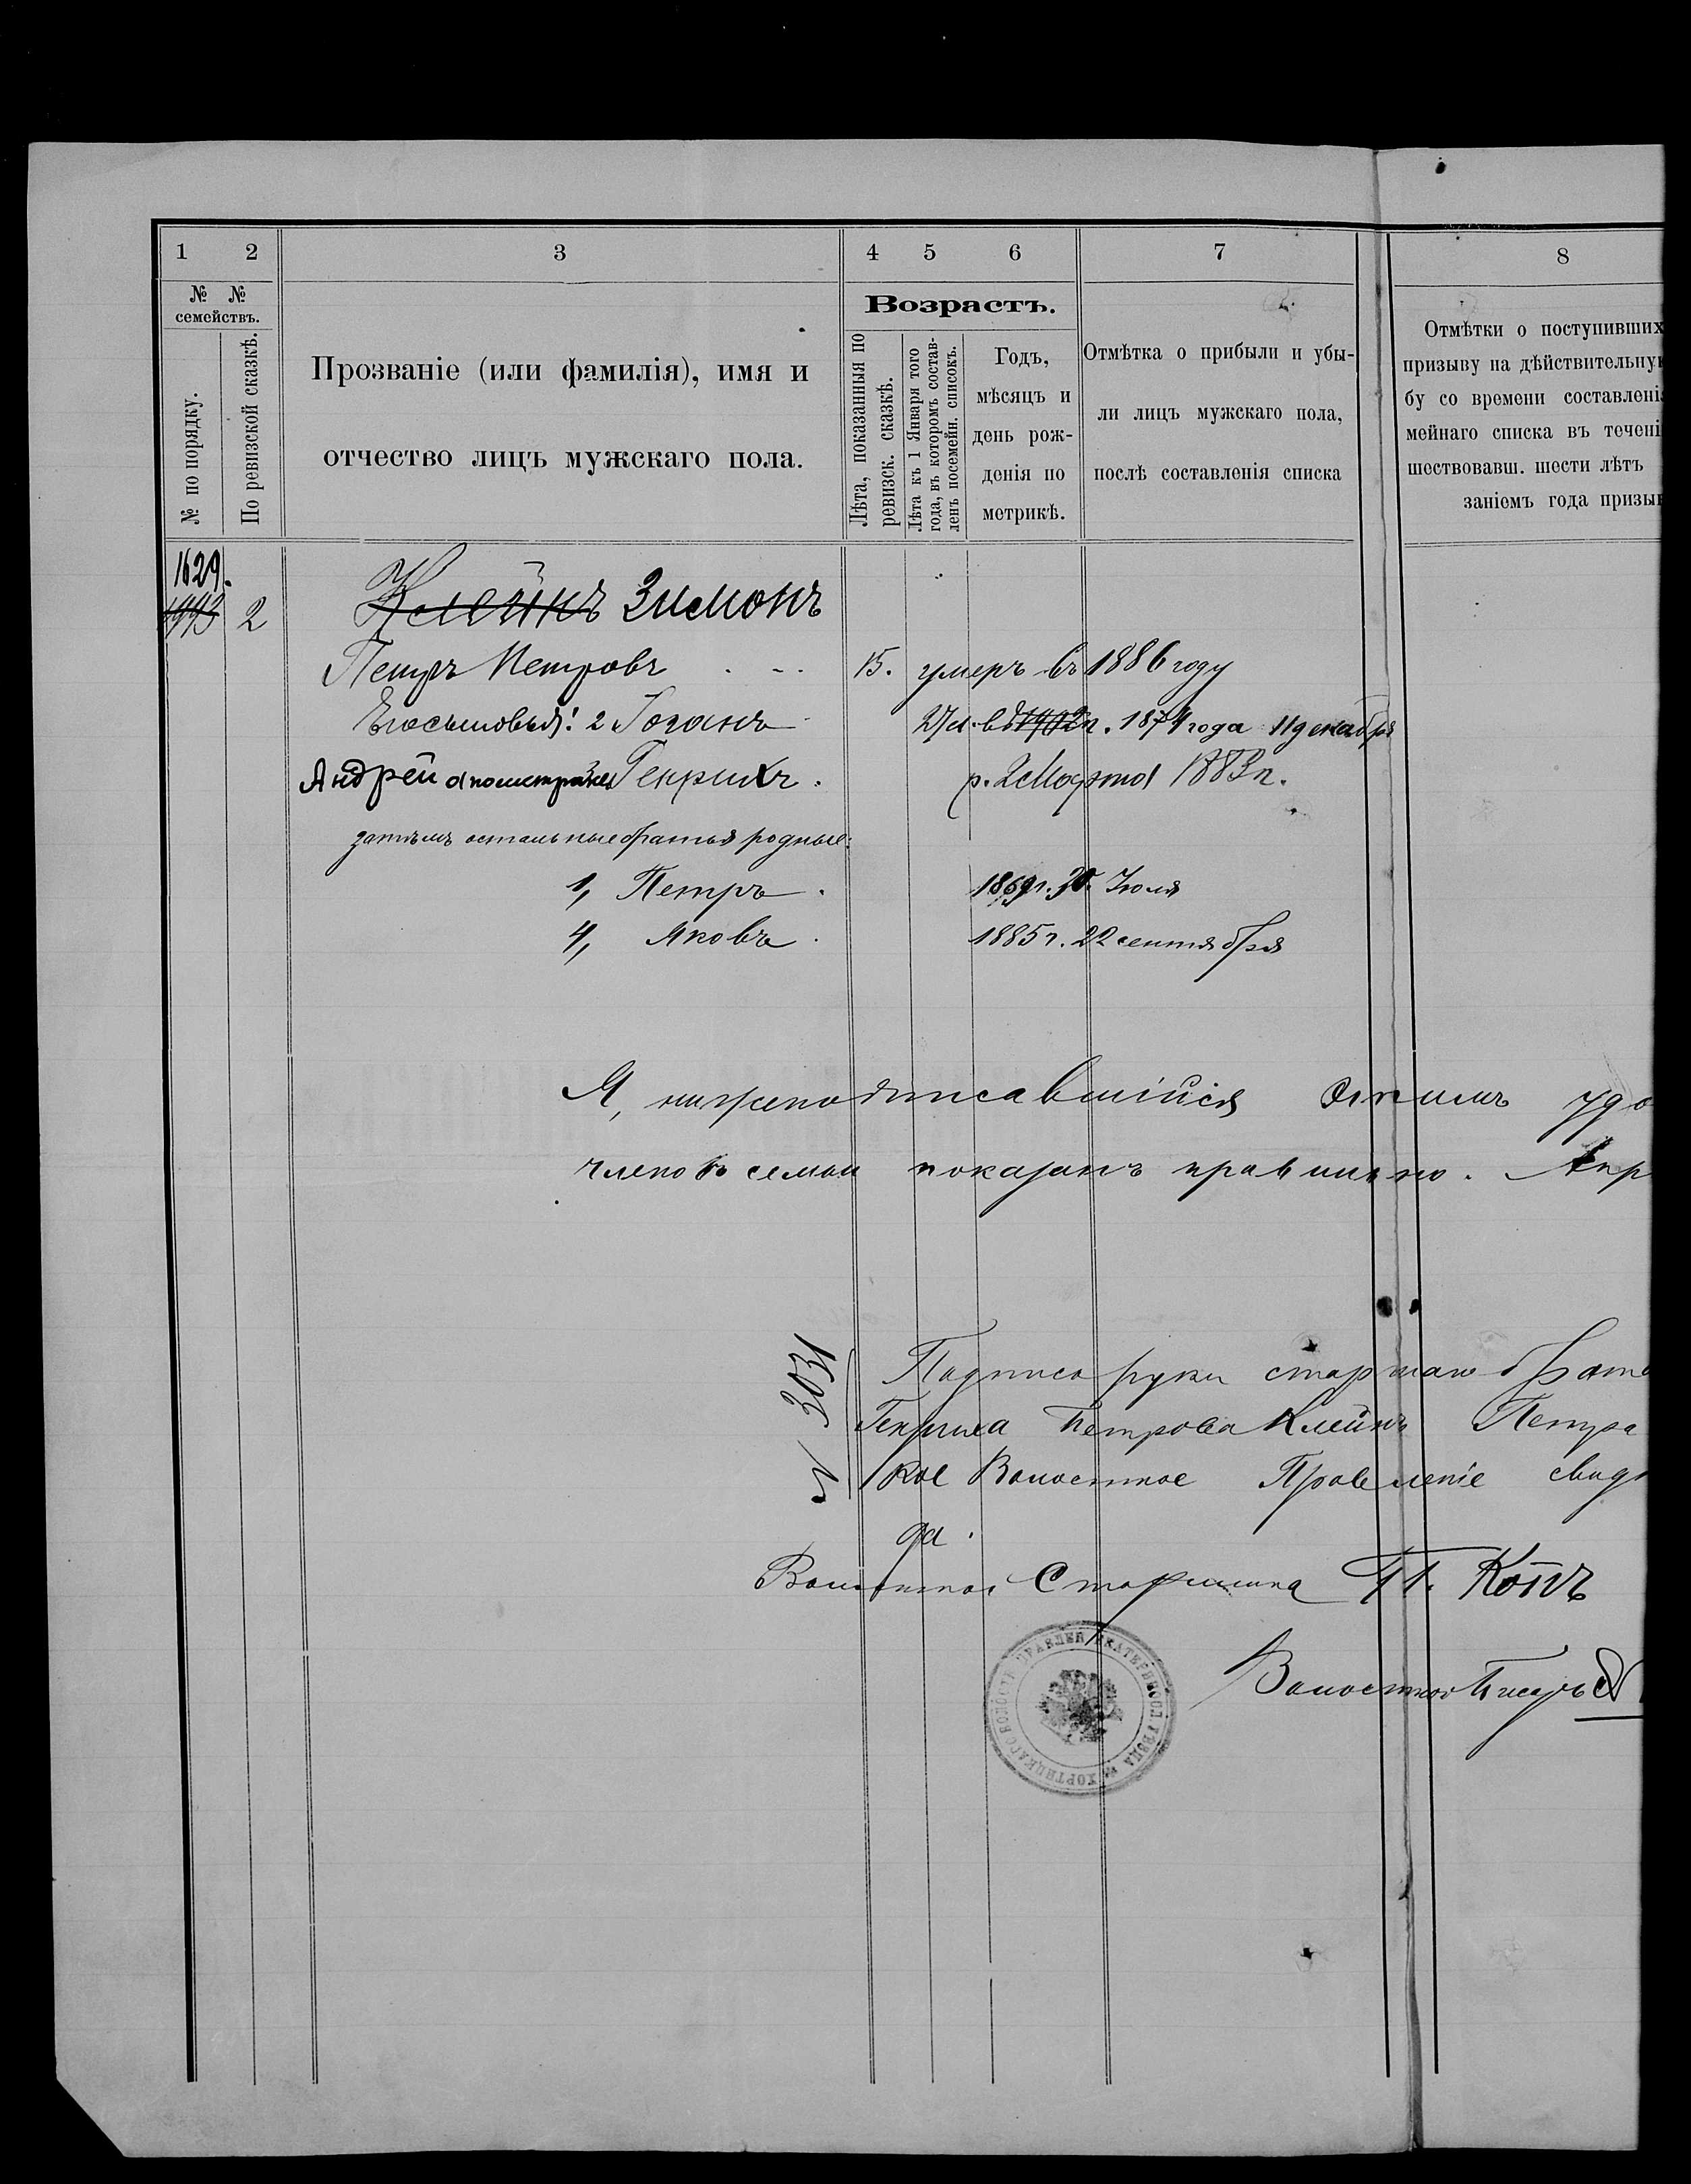 1 2 3 4 5 6 7 8
№ № семействъ.
№ по порядку.
По ревизской сказкѣ.
Прозваніе (или фамилія), имя и
отчество лицъ мужскаго пола.
Возрастъ.
Лѣта, показанныя по
ревизск. сказкѣ.
Лѣта къ 1 Января того
года, въ которомъ состав-
ленъ посемейн. списокъ.
Годъ,
мѣсяцъ и
день рож-
денія по
метрикѣ.
Отмѣтка о прибыли и убы-
ли лицъ мужскаго пола,
послѣ составленія списка
Отмѣтки о поступивших
призыву на дѣйствительну
бу со времени составлені
мейнаго списка въ течені
шествовавш. шести лѣтъ
заніемъ года призы
1629.
1993 2 Клейнъ Зимонъ
Петръ Петровъ 15. умеръ въ 1886 году
Его сыновья: 2 Іоганъ в 1902 г. 1874 года 11 декабря
Андрей а по метрике 3 Генрихъ. р. 2 Марта 1883 г.
затѣмъ остальные братья родные:
1, Петръ. 1869 г. 30 Іюля
4, Яковъ. 1885 г. 22 сентября
Я, нижеподписавшійся симъ удо
членовъ семьи показанъ правильно. Апр
№ 3031
Подпись руки старшаго брата
Генриха Петрова Клейнъ Петра
кое Волостное Правленіе свид
да.
Волостной Старшина П. Копъ
Волостной Писарь
ХОРТИЦКАГО ВОЛОСТН. ПРАВЛЕН. ЕКАТЕРИНОСЛ. УѢЗДА